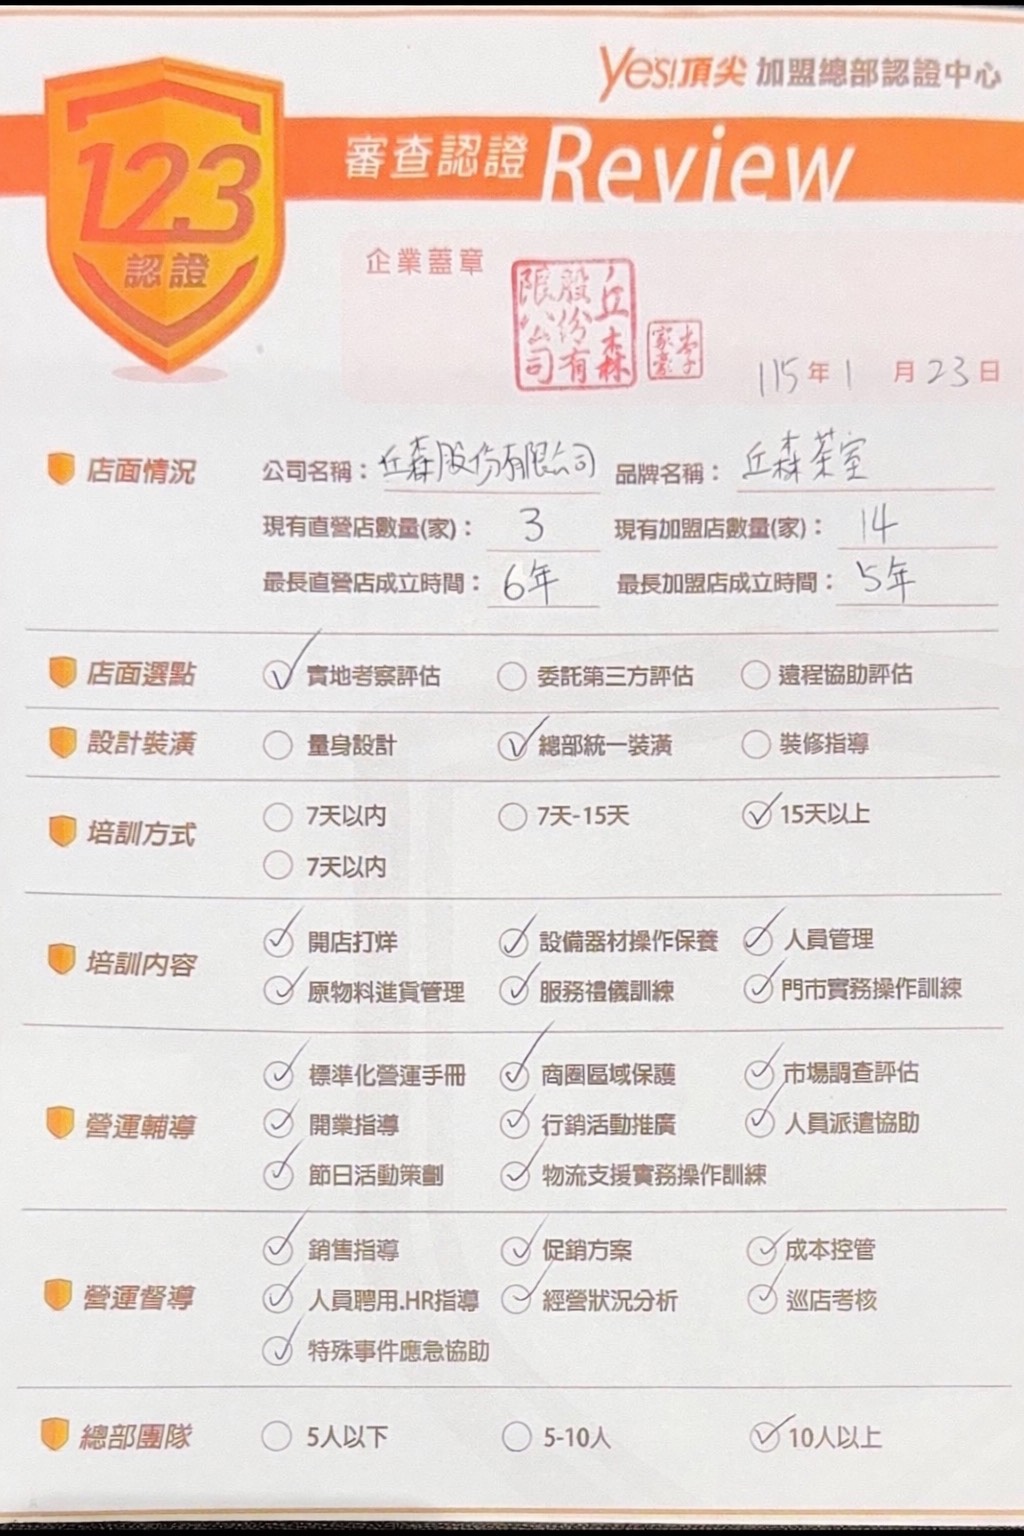 Yes!頂尖 加盟總部認證中心
123
認證
審查認證 Review
企業蓋章
丘森股份有限公司
李家豪
115年1月23日
店面情況
公司名稱：丘森股份有限公司 品牌名稱：丘森茶室
現有直營店數量(家)：3 現有加盟店數量(家)：14
最長直營店成立時間：6年 最長加盟店成立時間：5年
店面選點 ✓實地考察評估 委託第三方評估 遠程協助評估
設計裝潢 量身設計 ✓總部統一裝潢 裝修指導
培訓方式 7天以內 7天-15天 ✓15天以上
7天以內
培訓內容 ✓開店打烊 ✓設備器材操作保養 ✓人員管理
✓原物料進貨管理 ✓服務禮儀訓練 ✓門市實務操作訓練
營運輔導 ✓標準化營運手冊 ✓商圈區域保護 ✓市場調查評估
✓開業指導 ✓行銷活動推廣 ✓人員派遣協助
✓節日活動策劃 ✓物流支援實務操作訓練
營運督導 ✓銷售指導 ✓促銷方案 ✓成本控管
✓人員聘用.HR指導 ✓經營狀況分析 ✓巡店考核
✓特殊事件應急協助
總部團隊 5人以下 5-10人 ✓10人以上